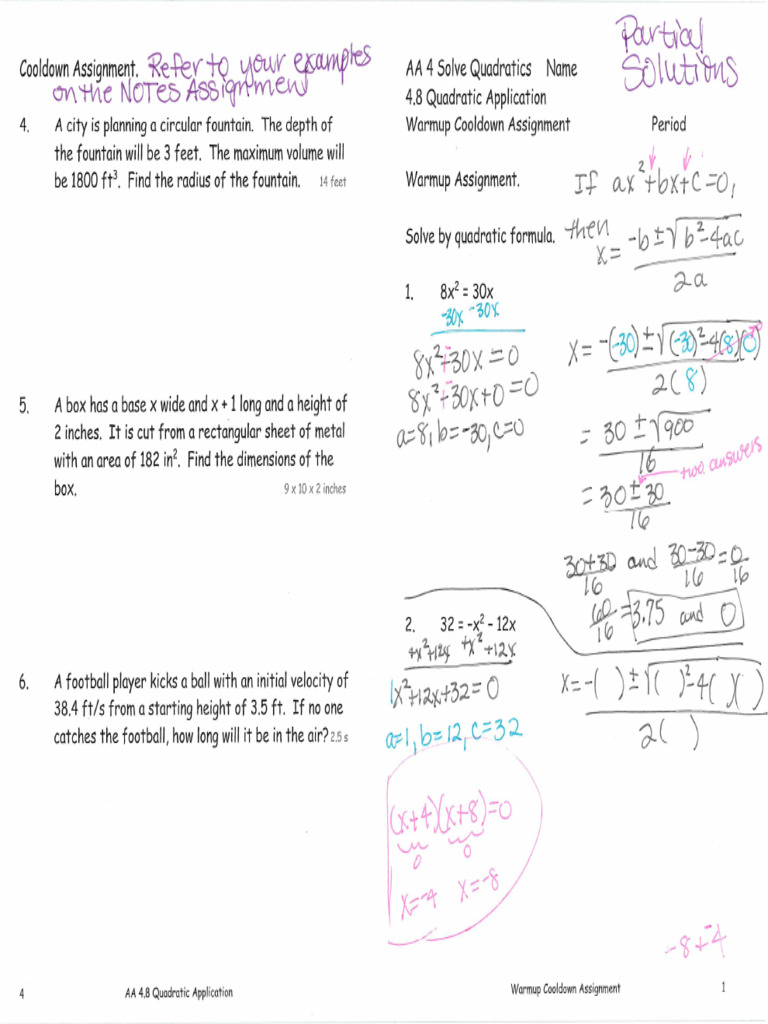 Cooldown Assignment. Refer to your examples
on the NOTES Assignment
4. A city is planning a circular fountain. The depth of
the fountain will be 3 feet. The maximum volume will
be 1800 ft³. Find the radius of the fountain. 14 feet
5. A box has a base x wide and x + 1 long and a height of
2 inches. It is cut from a rectangular sheet of metal
with an area of 182 in². Find the dimensions of the
box. 9 x 10 x 2 inches
6. A football player kicks a ball with an initial velocity of
38.4 ft/s from a starting height of 3.5 ft. If no one
catches the football, how long will it be in the air? 2.5 s
4 AA 4.8 Quadratic Application
Partial
Solutions
AA 4 Solve Quadratics Name
4.8 Quadratic Application
Warmup Cooldown Assignment Period
Warmup Assignment.
If ax²+bx+c=0,
Solve by quadratic formula.
then
x = -b±√b²-4ac
2a
1. 8x² = 30x
-30x -30x
8x²-30x=0
8x²-30x+0=0
a=8, b=-30, c=0
x = -(-30)±√(-30)²-4(8)(0)
2(8)
= 30±√900
16
two answers
= 30±30
16
30+30 and 30-30 = 0
16 16 16
60 = 3.75 and 0
16
2. 32 = -x² - 12x
+x²+12x +x²+12x
1x²+12x+32=0
a=1, b=12, c=32
x=-( )±√( )²-4( )( )
2( )
(x+4)(x+8)=0
0 0
x=-4 x=-8
-8+-4
Warmup Cooldown Assignment 1